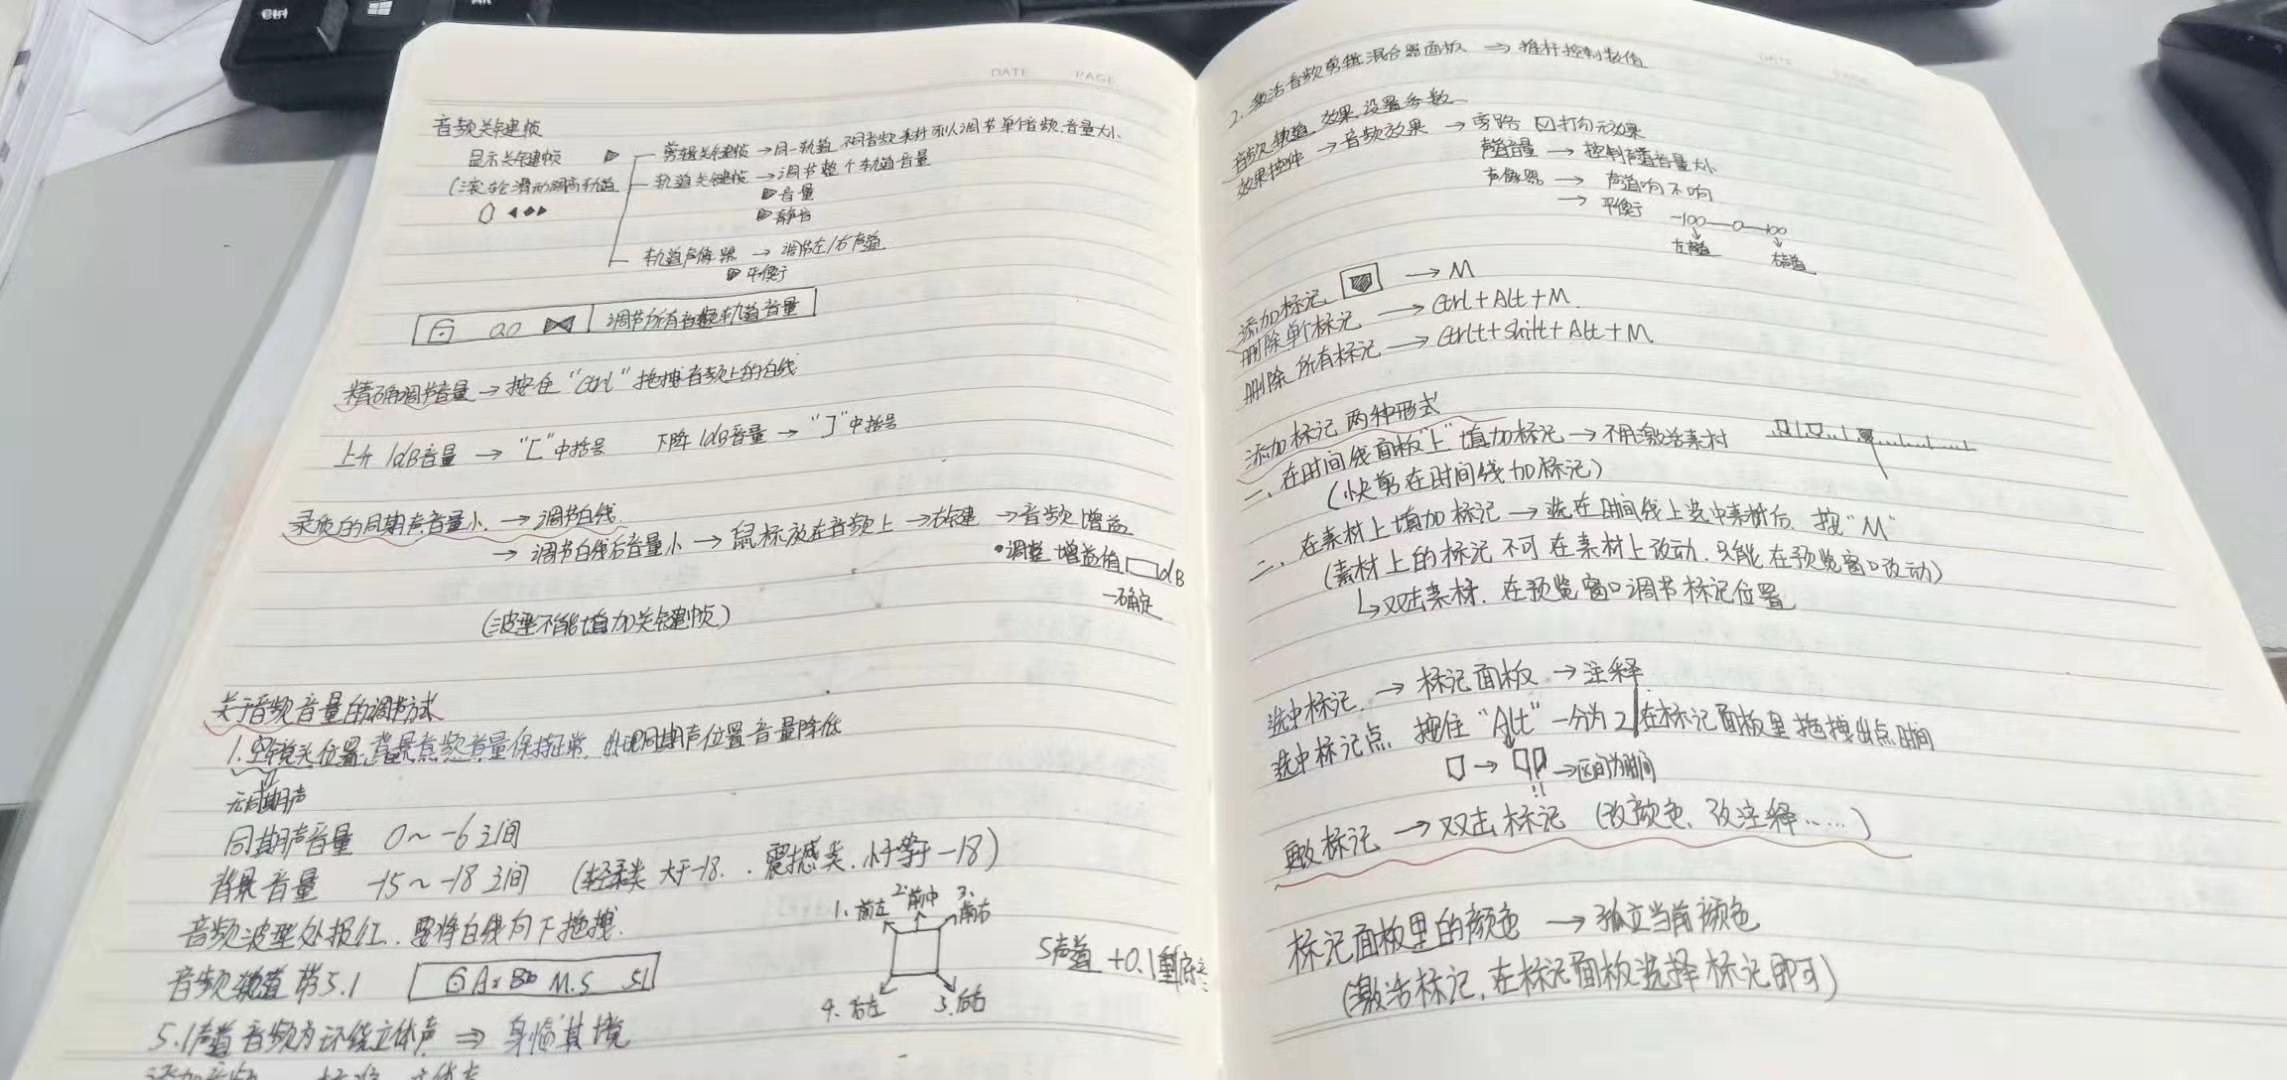 Ctrl
Alt
DATE PAGE
音频关键帧
显示关键帧 剪辑关键帧 → 同一轨道,不同音频素材可以调节单个音频,音量大小.
(滚轮滑动调高轨道 轨道关键帧 → 调节整个轨道音量
音量
静音
轨道声像器 → 调节左/右声道
平衡
0.0 调节所有音频轨道音量
精确调节音量 → 按住“Ctrl”拖拽音频上的白线
上升1dB音量 → “[”中括号 下降1dB音量 → “]”中括号
录债的同期声音量小. → 调节白线
→ 调节白线后音量小 → 鼠标放在音频上 → 右键 → 音频增益
•调整增益值 dB
→确定
(波型不能填加关键帧)
关于音频音量的调节方式
1.空镜头位置,背景音频音量保持正常,出现同期声位置音量降低
无同期声
同期声音量 0~-6之间
背景音量 -15~-18之间 (轻柔类 大于-18. 震撼类.小于等于-18)
音频波型处报红.要将白线向下拖拽.
1.前左 2.前中 3.前右
4.右左 5.后右
5声道 +0.1重低音
音频轨道 带5.1 M.S 5.1
5.1声道音频为环绕立体声 ⇒ 身临其境
添加音频 标准 立体声
DATE PAGE
2.激活音频剪辑混合器面板 → 推杆控制数值
音频轨道.效果.设置参数
效果控件 → 音频效果 → 旁路 ☑打勾无效果
声道音量 → 控制声道音量大小
声像器 → 声道响不响
→ 平衡 -100—0—100
左声道 右声道
添加标记. → M
删除单个标记 → Ctrl+Alt+M.
删除所有标记 → Ctrlt+shift+Alt+M
添加标记两种形式
一、在时间线面板“上”填加标记 → 不用激活素材
(快剪在时间线加标记)
二、在素材上填加标记 → 选在时间线上选中素材后.按“M”
(素材上的标记不可在素材上改动.只能在预览窗口改动)
↳双击素材.在预览窗口调节标记位置
选中标记. → 标记面板 → 注释
选中标记点.按住“Alt”一分为2/在标记面板里拖拽出点时间
→ →区间为时间
更改标记 → 双击标记 (改颜色、改注释.....)
标记面板里的颜色 → 孤立当前颜色
(激活标记,在标记面板选择标记即可)